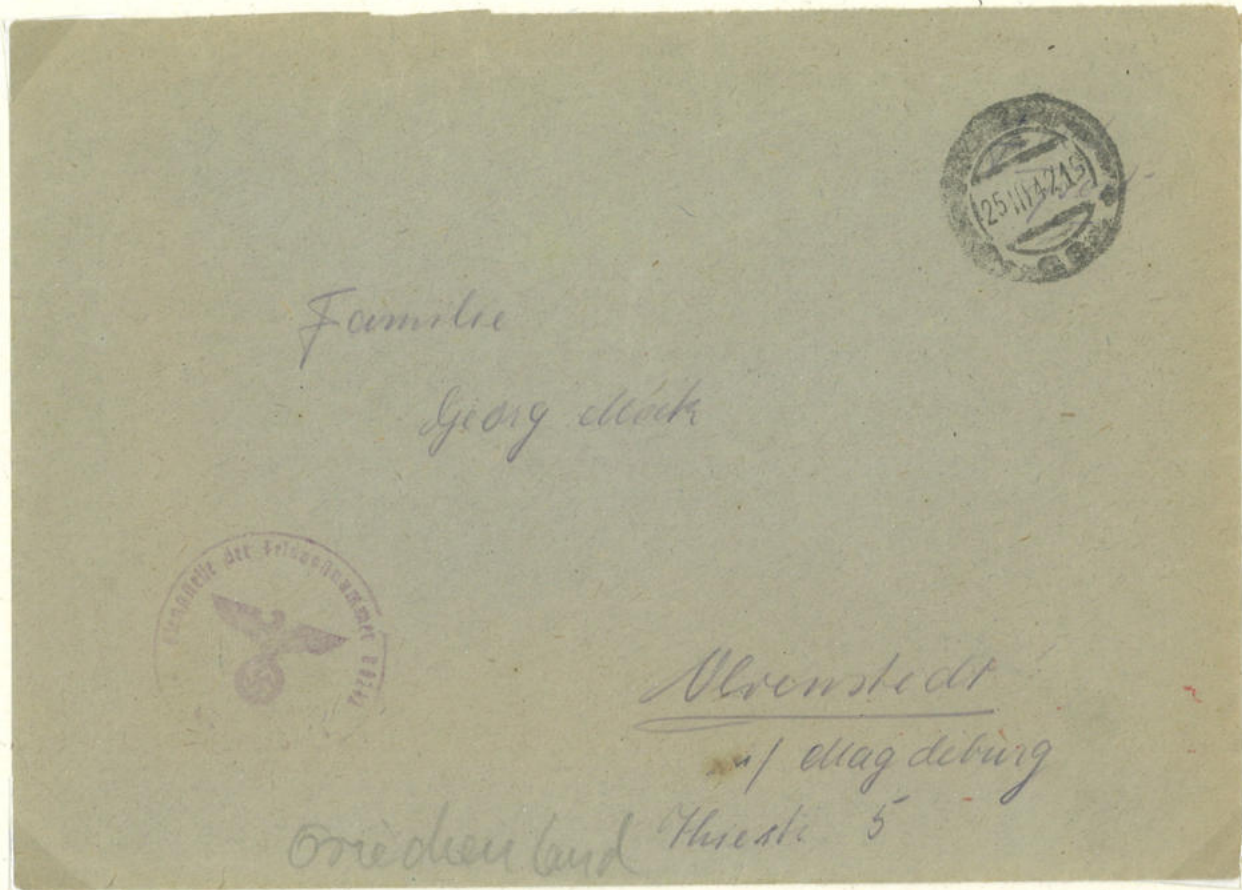 25.III.42.19
Familie
Georg Mock
Dienststelle der Feldpostnummer
Olvenstedt
b/ Magdeburg
5
Griechenland